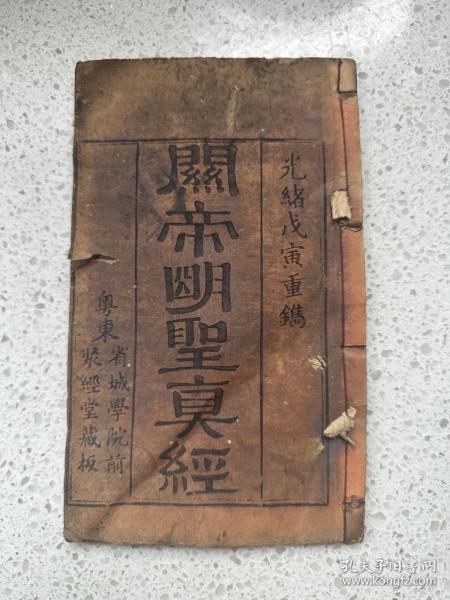 光緒戊寅重鐫
關帝明聖真經
粵東省城學院前
聚經堂藏板
孔夫子旧书网
www.kongfz.com